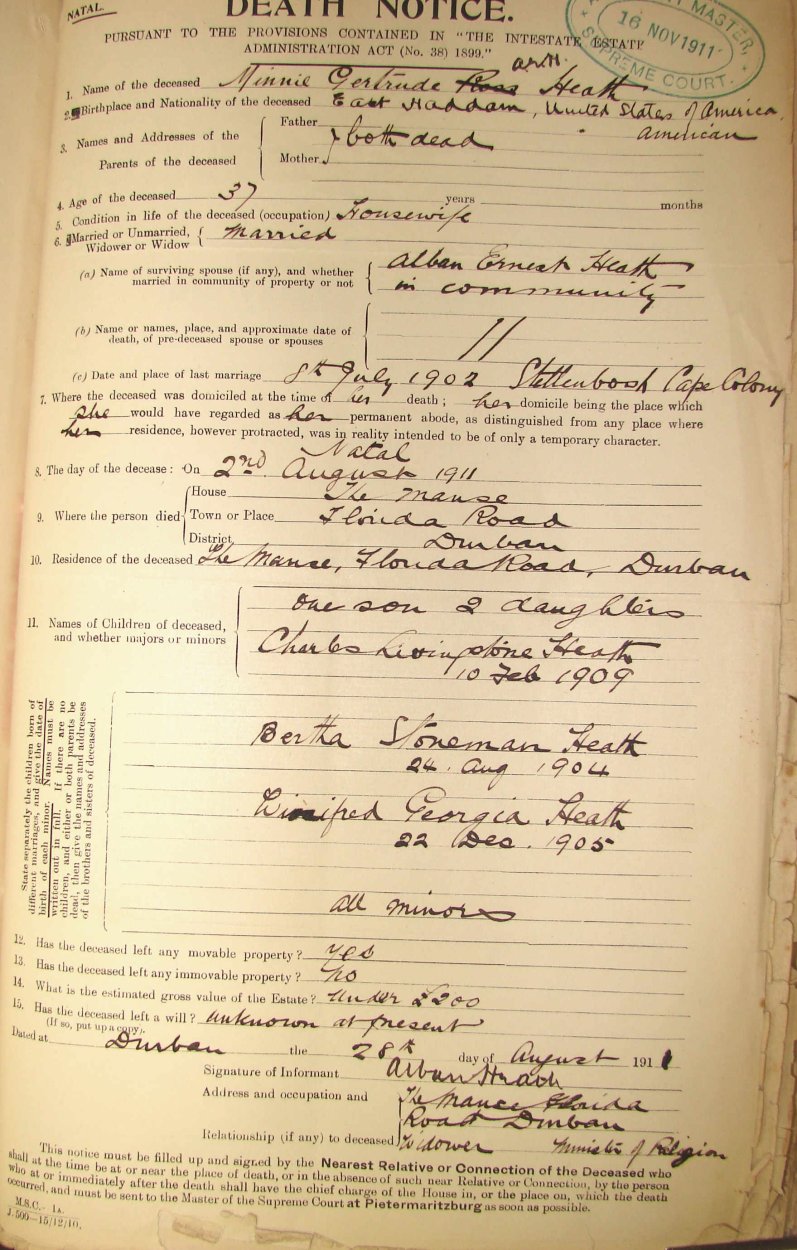 NATAL.
DEATH NOTICE.
MASTER
16 NOV 1911
SUPREME COURT.
PURSUANT TO THE PROVISIONS CONTAINED IN "THE INTESTATE ESTATE
ADMINISTRATION ACT (No. 38) 1899."
1. Name of the deceased Minnie Gertrude Ross Heath
2. Birthplace and Nationality of the deceased East Haddam, United States of America
American
3. Names and Addresses of the Parents of the deceased { Father
Mother
} both dead
4. Age of the deceased 37 years months
5. Condition in life of the deceased (occupation) Housewife
6. Married or Unmarried, Widower or Widow { Married
(a) Name of surviving spouse (if any), and whether { Alban Ernest Heath
married in community of property or not in community
(b) Name or names, place, and approximate date of
death, of pre-deceased spouse or spouses //
(c) Date and place of last marriage 8th July 1902 Stellenbosh Cape Colony
7. Where the deceased was domiciled at the time of her death; her domicile being the place which
she would have regarded as her permanent abode, as distinguished from any place where
her residence, however protracted, was in reality intended to be of only a temporary character.
Natal
8. The day of the decease: On 2nd August 1911
9. Where the person died { House The Manse
Town or Place Florida Road
District Durban
10. Residence of the deceased The Manse, Florida Road, Durban
11. Names of Children of deceased, and whether majors or minors
one son 2 daughters
Charles Livingstone Heath
10 Feb 1909
State separately the children born of
different marriages, and give the date of
birth of each minor. Names must be
written out in full. If there are no
children, and either or both parents be
dead, then give the names and addresses
of the brothers and sisters of deceased.
Bertha Stoneman Heath
24. Aug 1904
Winifred Georgia Heath
22 Dec. 1905
all minors
12. Has the deceased left any movable property? yes
13. Has the deceased left any immovable property? no
14. What is the estimated gross value of the Estate? under £200
15. Has the deceased left a will? unknown at present
(If so, put up a copy).
Dated at Durban the 28th day of August 1911
Signature of Informant Alban Heath
Address and occupation and { The Manse Florida
Road Durban
Relationship (if any) to deceased Widower Minister of Religion
This notice must be filled up and signed by the Nearest Relative or Connection of the Deceased who
shall at the time be at or near the place of death, or in the absence of such near Relative or Connection, by the person
who at or immediately after the death shall have the chief charge of the House in, or the place on, which the death
occurred, and must be sent to the Master of the Supreme Court at Pietermaritzburg as soon as possible.
M.S.C.- 1A.
J. 500-15/12/10.